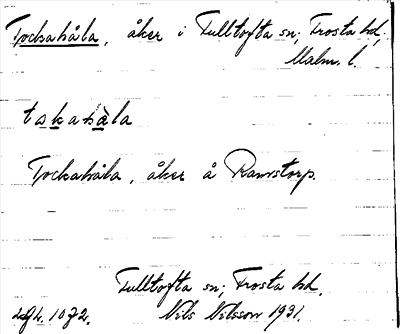 Tockahåla, åker i Fulltofta sn; Frosta hd,
Malm. l.
tskahåla
Tockahåla, åker å Ramstorp.
Fulltofta sn; Frosta hd.
Nils Nilsson 1931.